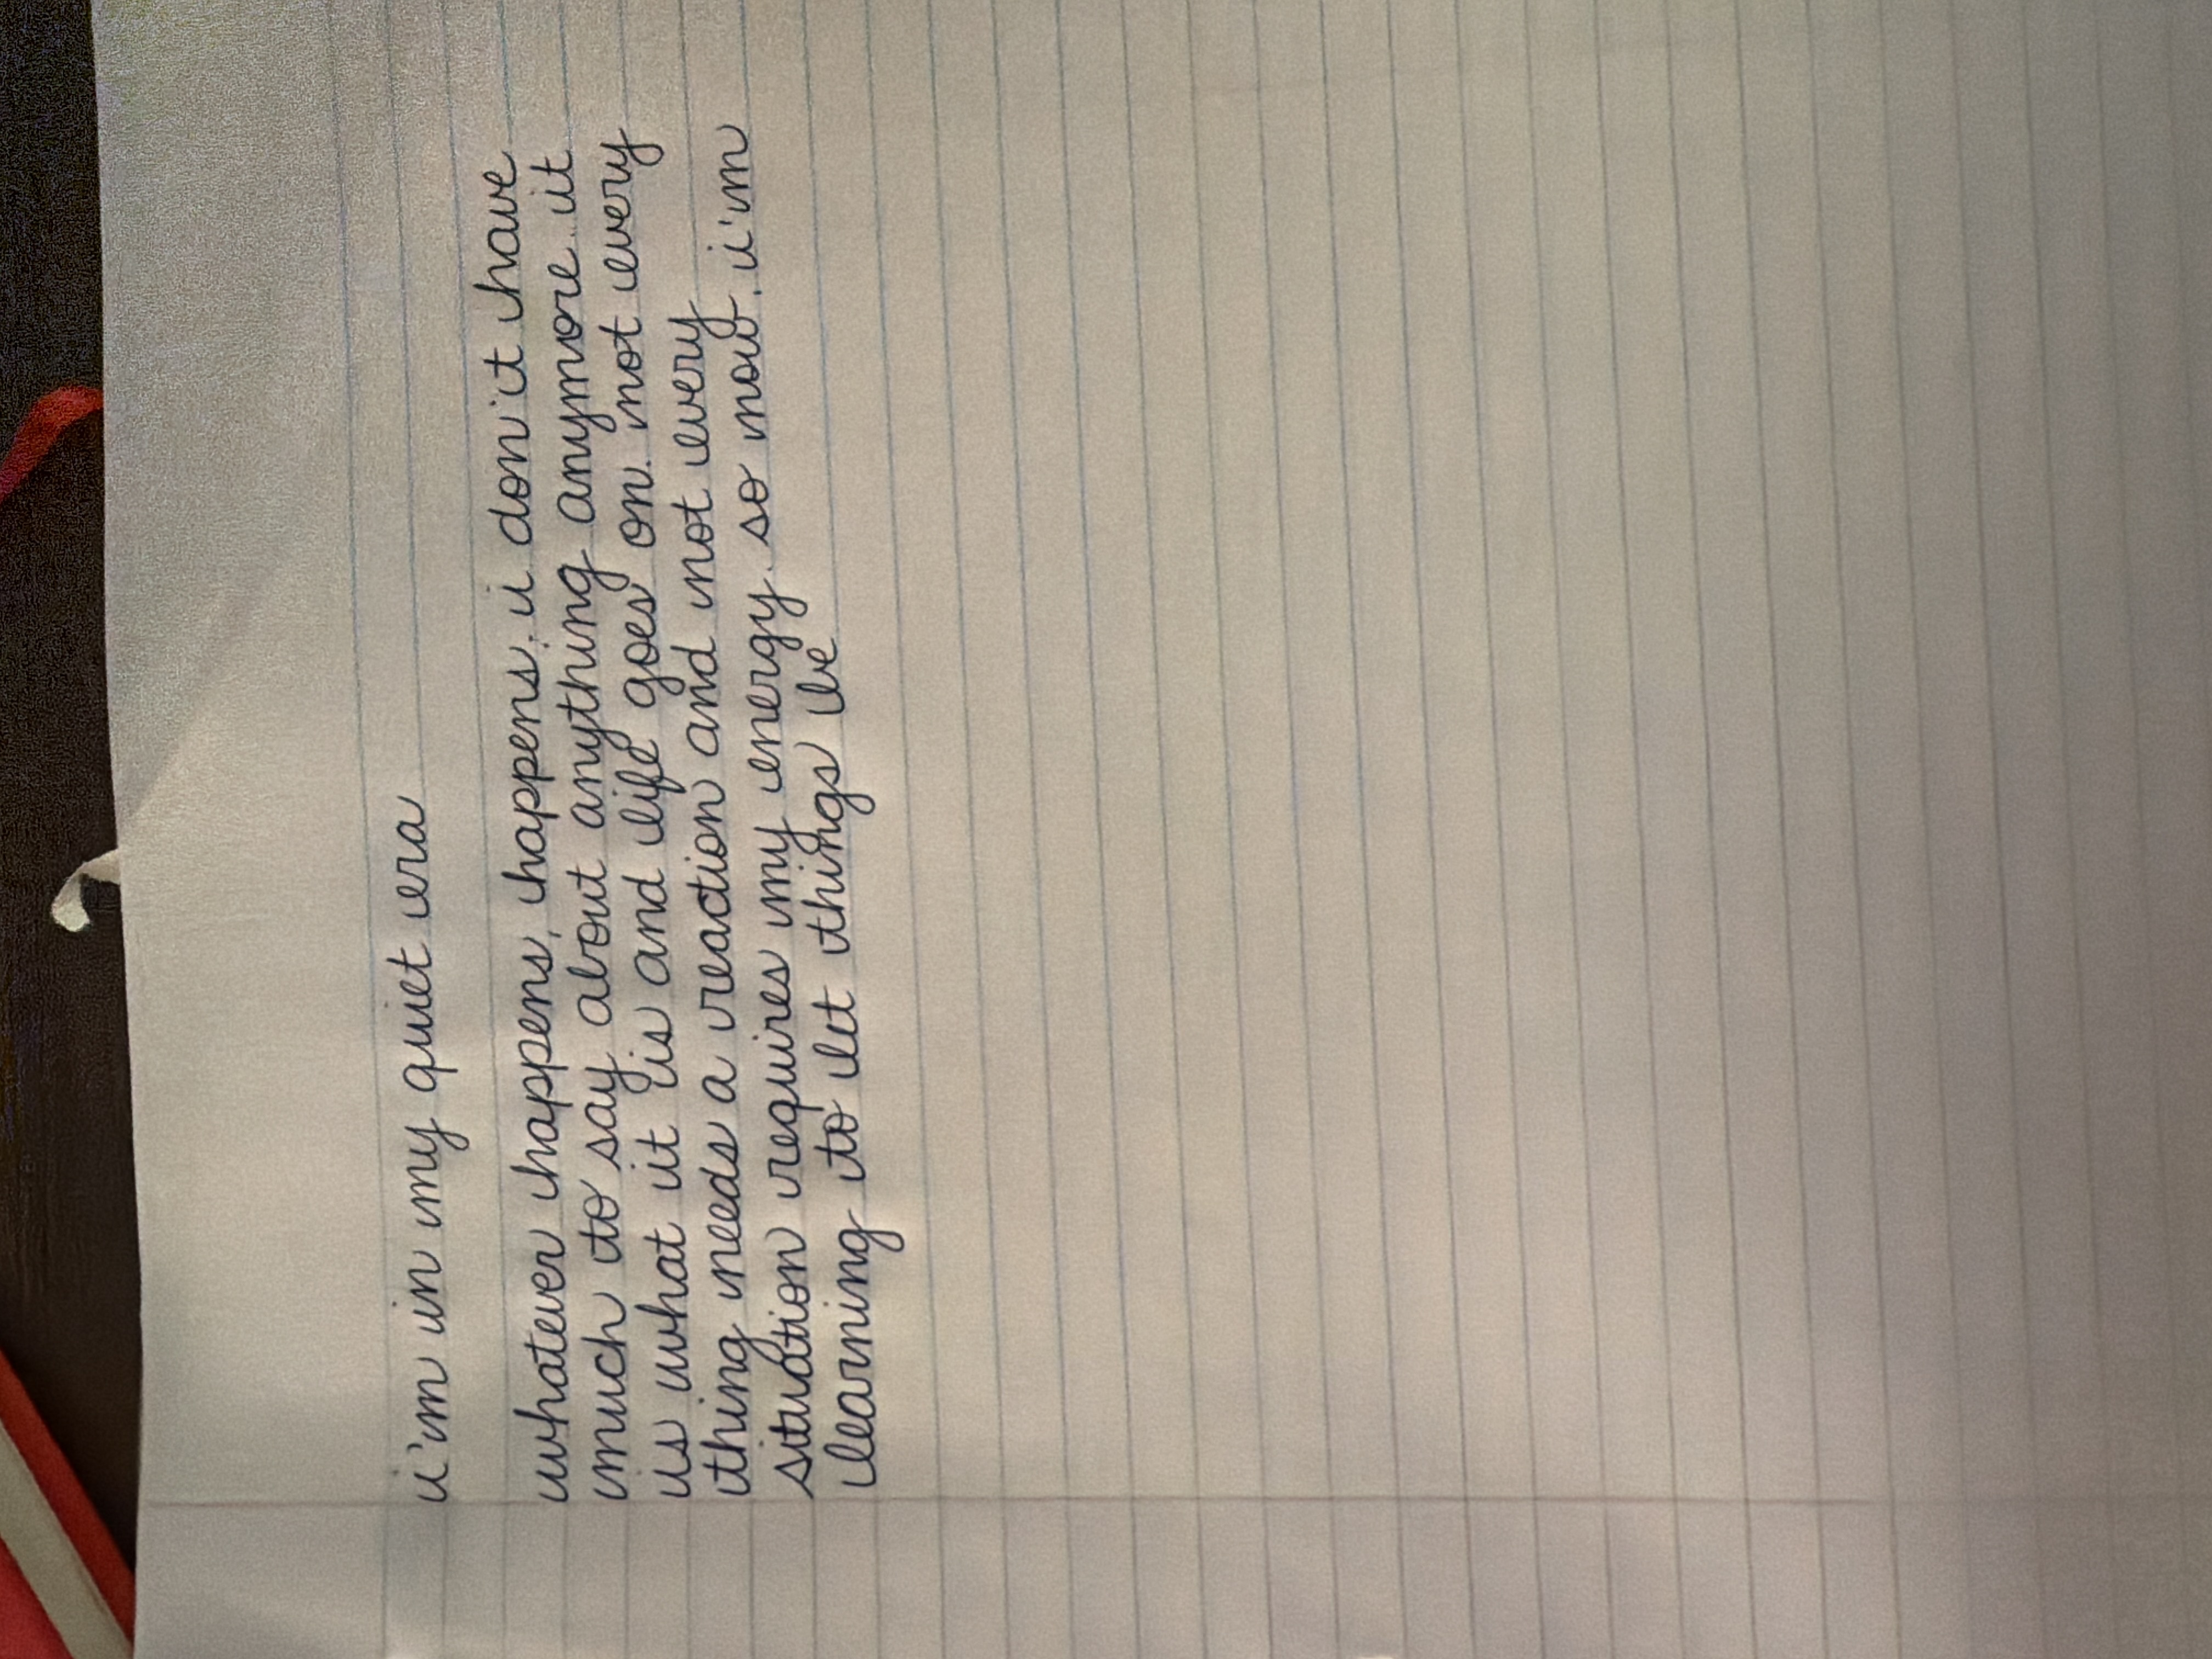 i'm in my quiet era
whatever happens, happens. i don't have
much to say about anything anymore. it
is what it is and life goes on. not every
thing needs a reaction and not every
situation requires my energy. so now, i'm
learning to let things be